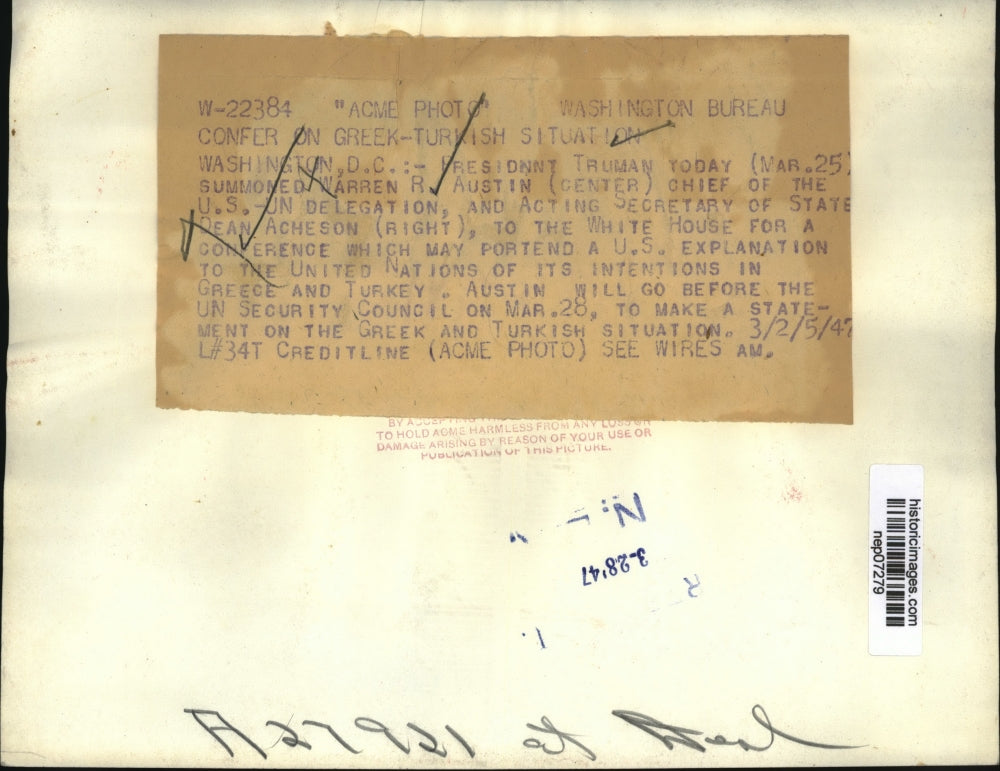 W-22384 "ACME PHOTO" WASHINGTON BUREAU
CONFER ON GREEK-TURKISH SITUATION
WASHINGTON,D.C.:- PRESIDNNT TRUMAN TODAY (MAR.25)
SUMMONED WARREN R. AUSTIN (CENTER) CHIEF OF THE
U.S.-UN DELEGATION, AND ACTING SECRETARY OF STATE
DEAN ACHESON (RIGHT), TO THE WHITE HOUSE FOR A
CONFERENCE WHICH MAY PORTEND A U.S. EXPLANATION
TO THE UNITED NATIONS OF ITS INTENTIONS IN
GREECE AND TURKEY. AUSTIN WILL GO BEFORE THE
UN SECURITY COUNCIL ON MAR.28, TO MAKE A STATE-
MENT ON THE GREEK AND TURKISH SITUATION. 3/2/5/47
L#34T CREDITLINE (ACME PHOTO) SEE WIRES AM.
BY ACCEPTING
TO HOLD ACME HARMLESS FROM ANY LOSS OR
DAMAGE ARISING BY REASON OF YOUR USE OR
PUBLICATION OF THIS PICTURE.
historicimages.com
nep07279
3-28'47